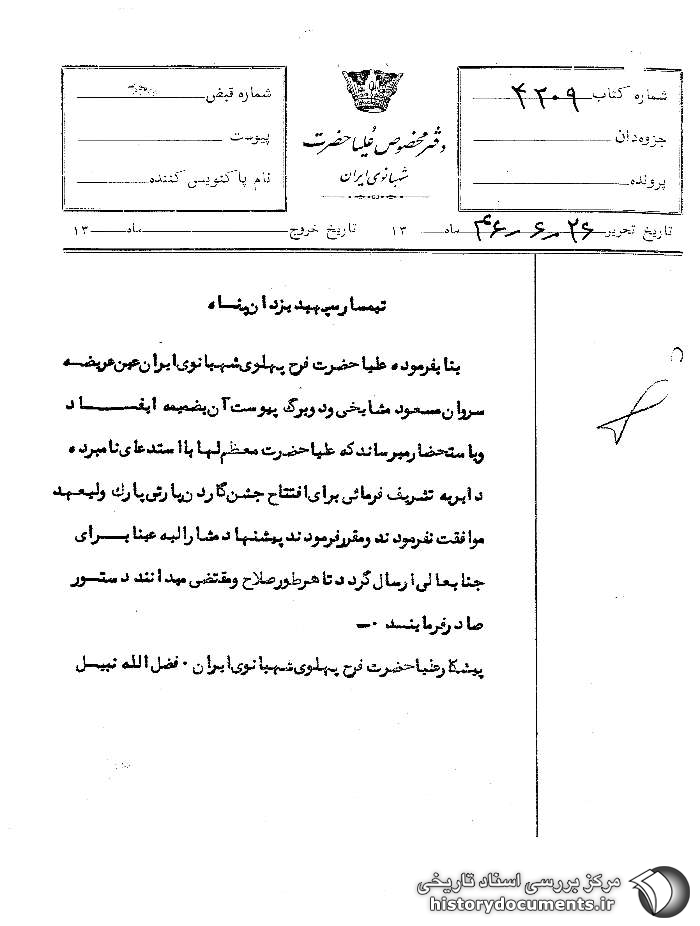 شماره کتاب ۴۲۰۹
جزوه‌دان
پرونده
دفتر مخصوص علیاحضرت
شهبانوی ایران
شماره قبض
پیوست
نام پاکنویس کننده
تاریخ تحریر ۲۶-۶-۴۶ ماه ۱۳
تاریخ خروج ماه ۱۳
تیمسار سپهبد یزدان پناه
بنا بفرموده علیاحضرت فرح پهلوی شهبانوی ایران عین عریضه
سروان مسعود مشایخی و دو برگ پیوست آن بضمیمه ایفاد
و باستحضار میرساند که علیاحضرت معظم لها با استدعای نامبرده
دایر به تشریف فرمائی برای افتتاح جشن گاردن پارتی پارک ولیعهد
موافقت نفرمودند و مقرر فرمودند پیشنهاد مشارالیه عینا برای
جنابعالی ارسال گردد تا هر طور صلاح و مقتضی میدانند دستور
صادر فرمایند ۰-
پیشکار علیاحضرت فرح پهلوی شهبانوی ایران ۰ فضل الله نبیل
مرکز بررسی اسناد تاریخی
historydocuments.ir